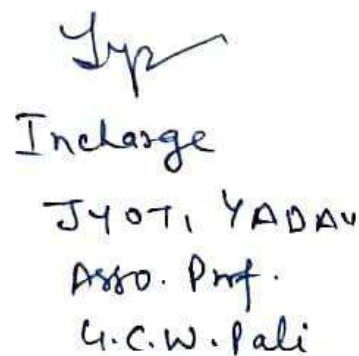 Incharge
JYOTI YADAV
Asso. Prof.
G.C.W. Pali